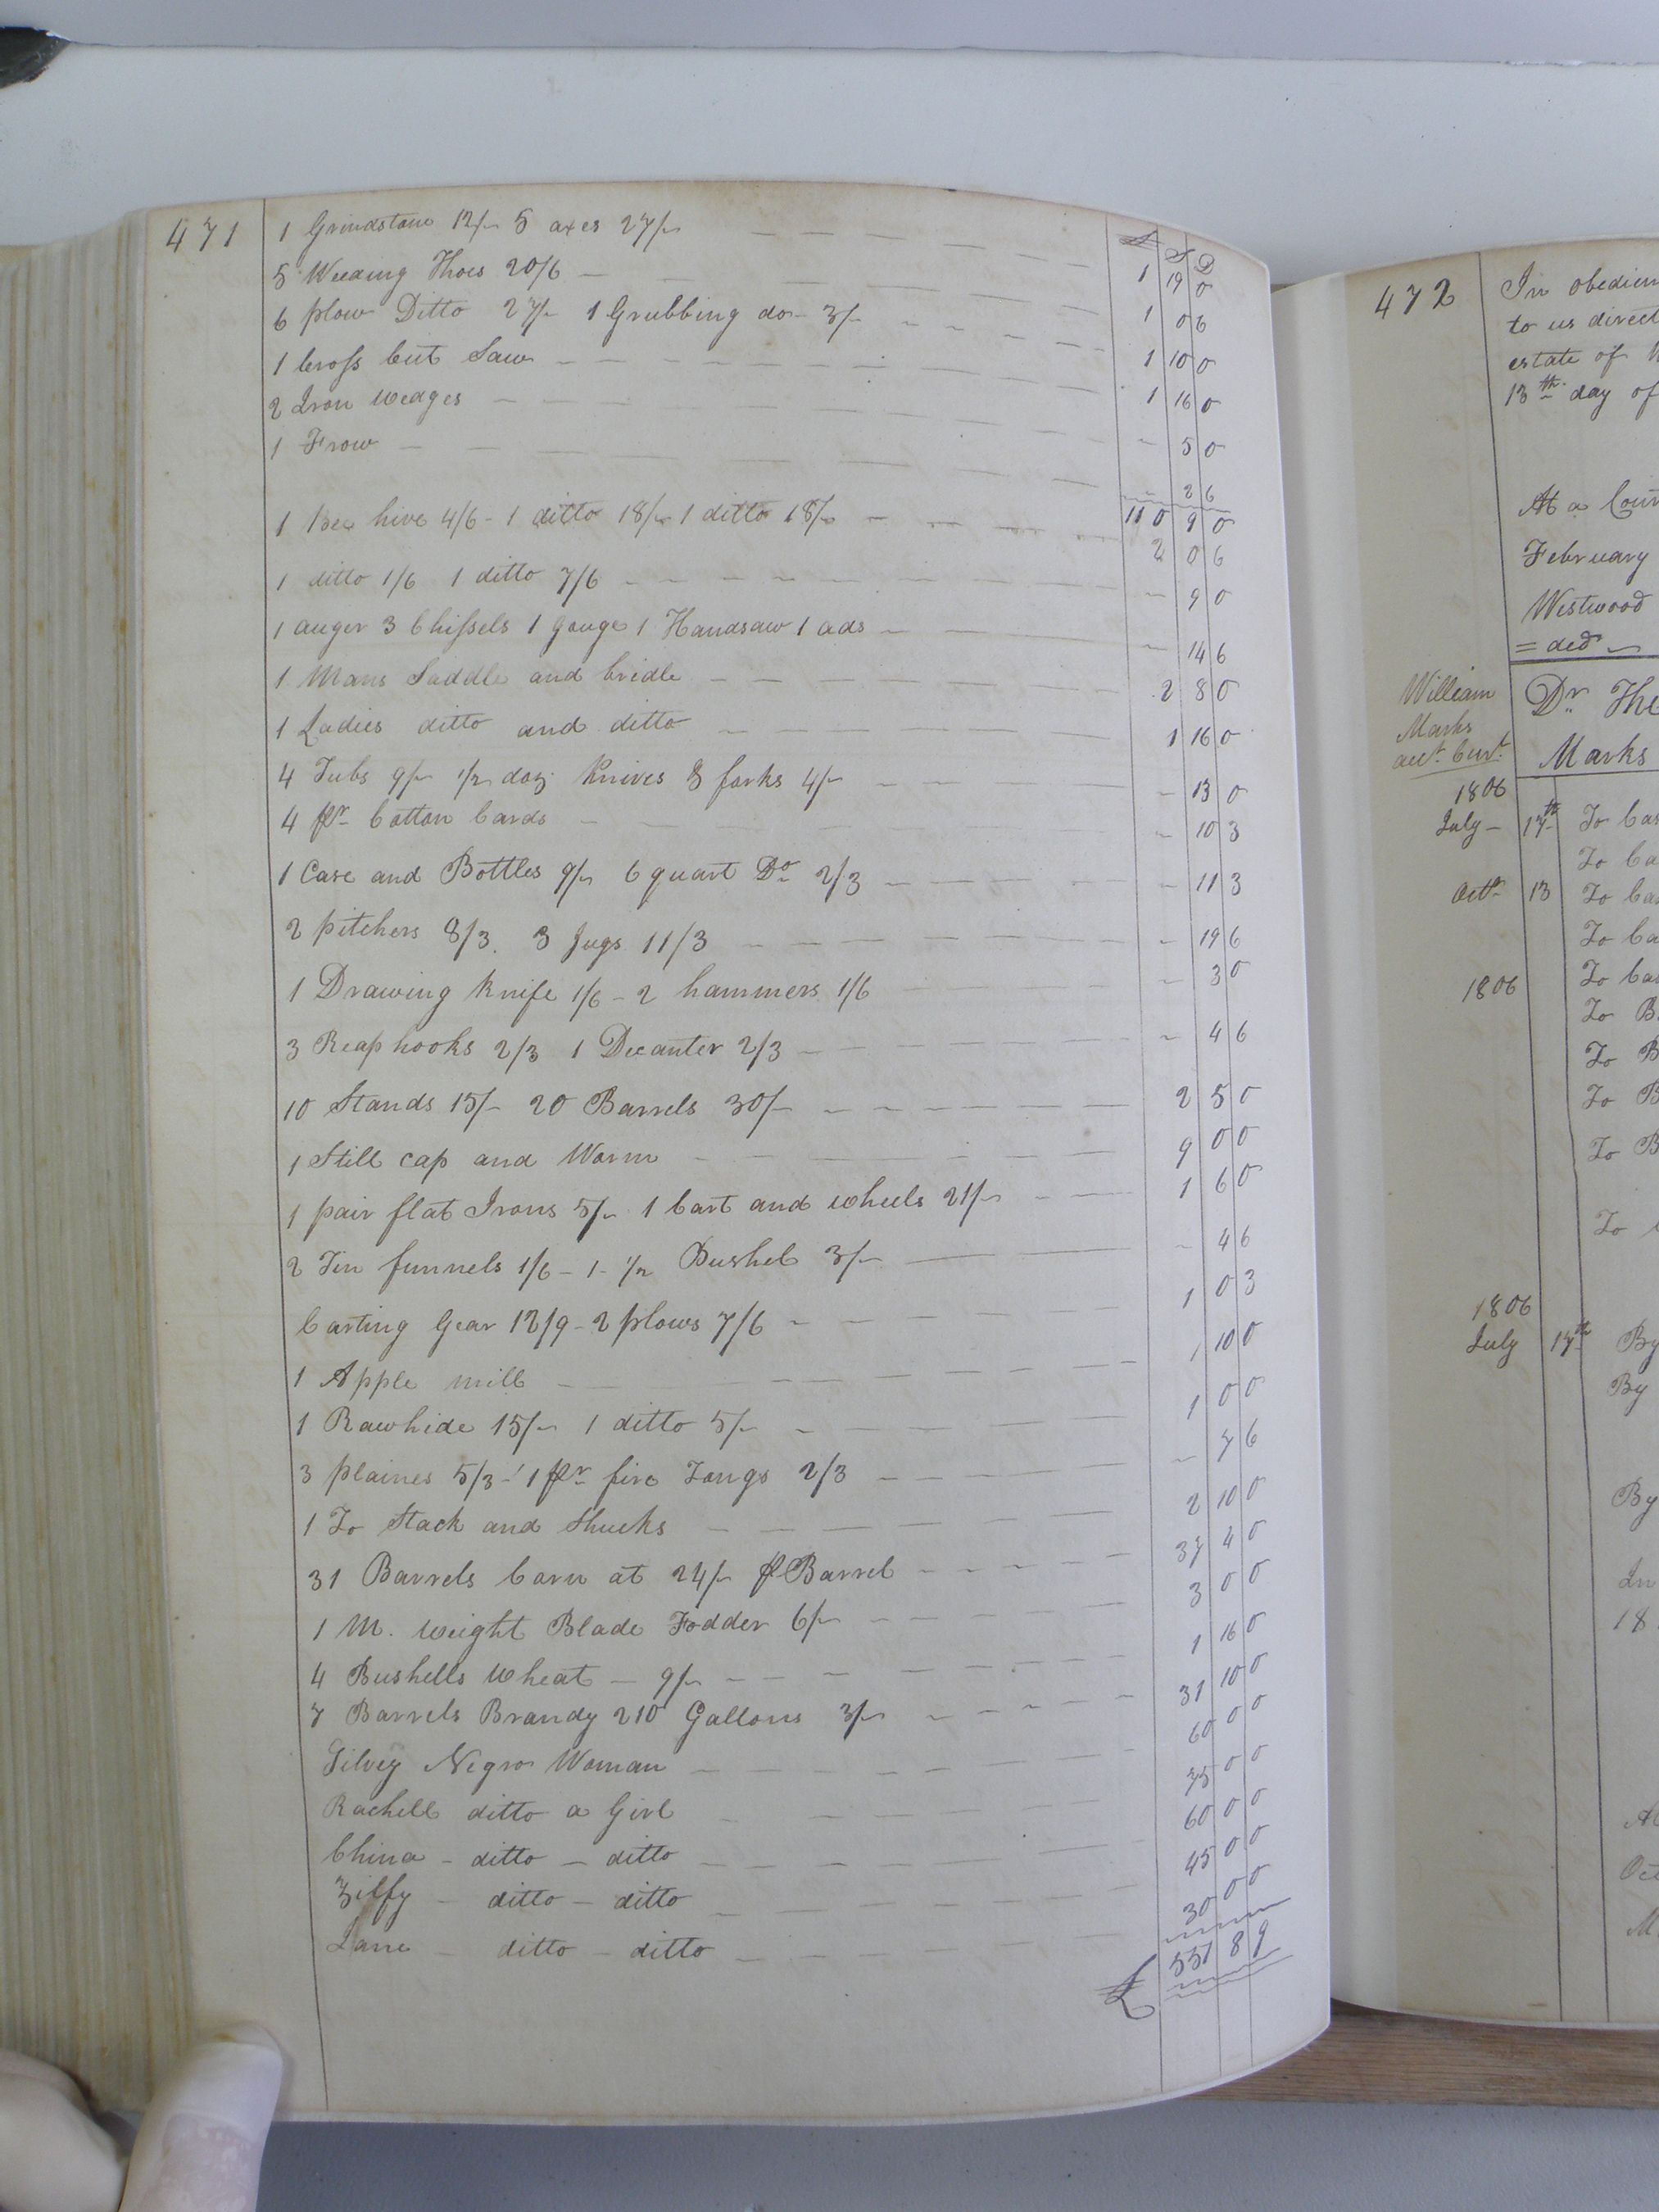 471
£ S D
1 Grindstone 12/- 5 axes 27/- 1 19 0
5 Weeding Hoes 20/6 1 0 6
6 plow Ditto 27/- 1 Grubbing do- 3/- 1 10 0
1 Cross Cut Saw 1 16 0
2 Iron wedges - 5 0
1 Frow - 2 6
110 9 0
1 Bee hive 4/6 - 1 ditto 18/- 1 ditto 18/- 2 0 6
1 ditto 1/6 1 ditto 7/6 - 9 0
1 auger 3 Chissels 1 gouge 1 Handsaw 1 ads - 14 6
1 Mans Saddle and bridle 2 8 0
1 Ladies ditto and ditto 1 16 0
4 Tubs 9/- 1/2 doz. Knives & forks 4/- - 13 0
4 pr Cotton Cards - 10 3
1 Case and Bottles 9/- 6 quart Do 2/3 - 11 3
2 pitchers 8/3. 3 Jugs 11/3 - 19 6
1 Drawing Knife 1/6 - 2 hammers 1/6 - 3 0
3 Reap hooks 2/3 1 Decanter 2/3 - 4 6
10 Stands 15/- 20 Barrels 30/- 2 5 0
1 Still cap and Worm 9 0 0
1 pair flat Irons 5/- 1 Cart and wheels 21/- 1 6 0
2 Tin funnels 1/6 - 1- 1/2 Bushel 3/- - 4 6
Carting Gear 12/9 - 2 plows 7/6 1 0 3
1 Apple mill 1 10 0
1 Rawhide 15/- 1 ditto 5/- 1 0 0
3 plaines 5/3 - 1 pr fire Tongs 2/3 - 7 6
1 To Stack and Shucks 2 10 0
31 Barrels Corn at 24/- p Barrel 37 4 0
1 M. weight Blade Fodder 6/- 3 0 0
4 Bushells Wheat - 9/- 1 16 0
7 Barrels Brandy 210 Gallons 3/- 31 10 0
Silvey Negro Woman 60 0 0
Rachell ditto a Girl 75 0 0
China - ditto - ditto 60 0 0
Zilfy - ditto - ditto 45 0 0
Jane - ditto - ditto 30 0 0
£ 551 8 9
472
In obedien
to us direct
estate of
13th day of
At a Cour
February
Westwood
= ded
William
Marks
acct. Curt.
Dr. The
Marks
1806
July - 17th To Cas
To Ca
Octr 13 To Cas
To Ca
1806 To Cas
To B
To B
To B
To B
To
1806
July 17th By
By
By
In
18
Oct